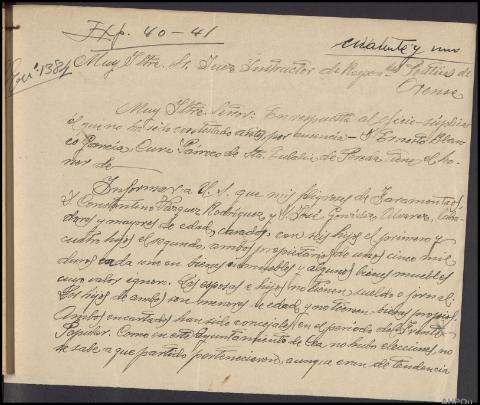 Exp. 40-41
cuarenta y uno
Regi. 1384
Muy Iltre. Sr. Juez Instructor de Respon. Políticas de
Orense
Muy Iltre. Señor: En respuesta al oficio-súplica
al que no he sido contestado antes, por ausencia - D. Ernesto Blan
co García Cura Párroco de Sta. Eulalia de Pereda tiene el ho-
nor de
Informar a V. S. que mis feligreses de Faramontaos,
D. Constantino Vázquez Rodríguez y José González Alvarez, labra
dores y mayores de edad, casados, con seis hijos el primero y
cuatro hijos el segundo, ambos propietarios de unos cinco mil
duros cada uno en bienes inmuebles y algunos bienes muebles
cuyo valor ignoro. Las esposas e hijos no tienen sueldo o jornal.
Los hijos de ambos son menores de edad, y no tienen bienes propios.
Ambos encartados han sido concejales en el periodo del Frente
Popular. Como en este Ayuntamiento de Cea no hubo elecciones, no
se sabe a que partido pertenecieron, aunque eran de tendencia
AHPOu